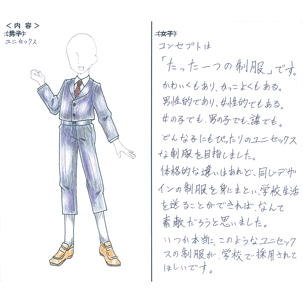 ＜内容＞
(男子)
ユニセックス
(女子)
コンセプトは
「たった一つの制服」です。
かわいくもあり、かっこよくもある。
男性的であり、女性的でもある。
女の子でも、男の子でも、誰でも。
どんな子にもぴったりのユニセックス
な制服を目指しました。
体格的な違いはあれど、同じデザ
インの制服を身にまとい、学校生活
を送ることができれば、なんて
素敵だろうと思いました。
いつか本当に、このようなユニセック
スの制服が、学校で採用されて
ほしいです。